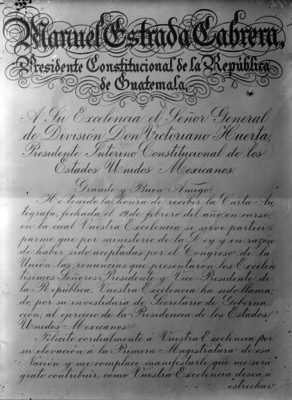 Manuel Estrada Cabrera,
Presidente Constitucional de la República
de Guatemala,
A Su Excelencia el Señor General
de División Don Victoriano Huerta,
Presidente Interino Constitucional de los
Estados Unidos Mexicanos
Grande y Buen Amigo
He tenido la honra de recibir la Carta Au-
tógrafa, fechada el 19 de febrero del año en curso
en la cual Vuestra Excelencia se sirve partici-
parme que por ministerio de la Ley y en razón
de haber sido aceptadas por el Congreso de la
Unión las renuncias que presentaron los Excelen-
tísimos Señores Presidente y Vice Presidente de
la República, Vuestra Excelencia ha sido llama-
do, por su investidura de Secretario de Goberna-
ción, al ejercicio de la Presidencia de los Estados
Unidos Mexicanos.
Felicito cordialmente a Vuestra Excelencia por
su elevación a la Primera Magistratura de esa
Nación y me complace manifestarle que me será
grato contribuir, como Vuestra Excelencia desea, a
estrechar